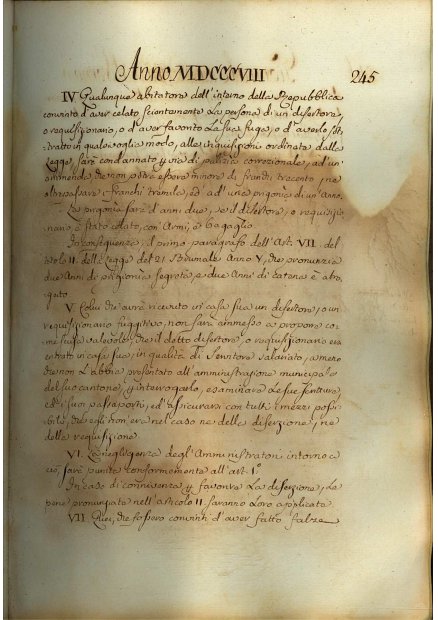 Anno MDCCCVIII
245
IV Qualunque abitatore dell'interno della Repubblica
convinto d'aver celato scientemente La persona di un disertore,
o requisizionario, o d'aver favorito La sua fuga, o d'averlo sot-
tratto in qualsivoglia modo, alle inquisizioni ordinate dalla
Legge, sarà condannato p via di polizia correzionale, ad un'
ammenda che non potrà essere minore di franchi trecento, ne
oltrepassare i franchi tremila, ed' ad' una prigonia di un'Anno.
La prigonia sarà d'anni due, se il disertore, o requisizio-
nario, è stato celato, con Armi, e bagaglio
In conseguenza il primo paragrafo dell'Art. VII del
titolo II della Legge del 21 Brumale Anno V, che pronunzia
due Anni di prigionia segreta, e due Anni di catena è abro-
gato
V Colui che avrà ricevuto in casa sua un disertore, o un
requisizionario fuggitivo, non sarà ammesso a proporre co-
me scusa valevole, che il detto disertore, o requisizionario era
entrato in casa sua, in qualità di Servitore salariato, a meno
che non L'abbia presentato all'amministrazione municipale
del suo cantone, p interrogarlo, esaminare Le sue scritture,
ed' i suoi passaporti, ed' assicurarsi con tutti i mezzi possi-
bili, che egli non era nel caso ne della diserzione, ne
della requisizione
VI. La negligenza degl'Amministratori intorno a
ciò, sarà punita conformemente all'art. 1º
In caso di connivenza p favorire La diserzione, Le
pene pronunziate nell'articolo II saranno Loro applicate
VII Quei, che fossero convinti d'aver fatto false